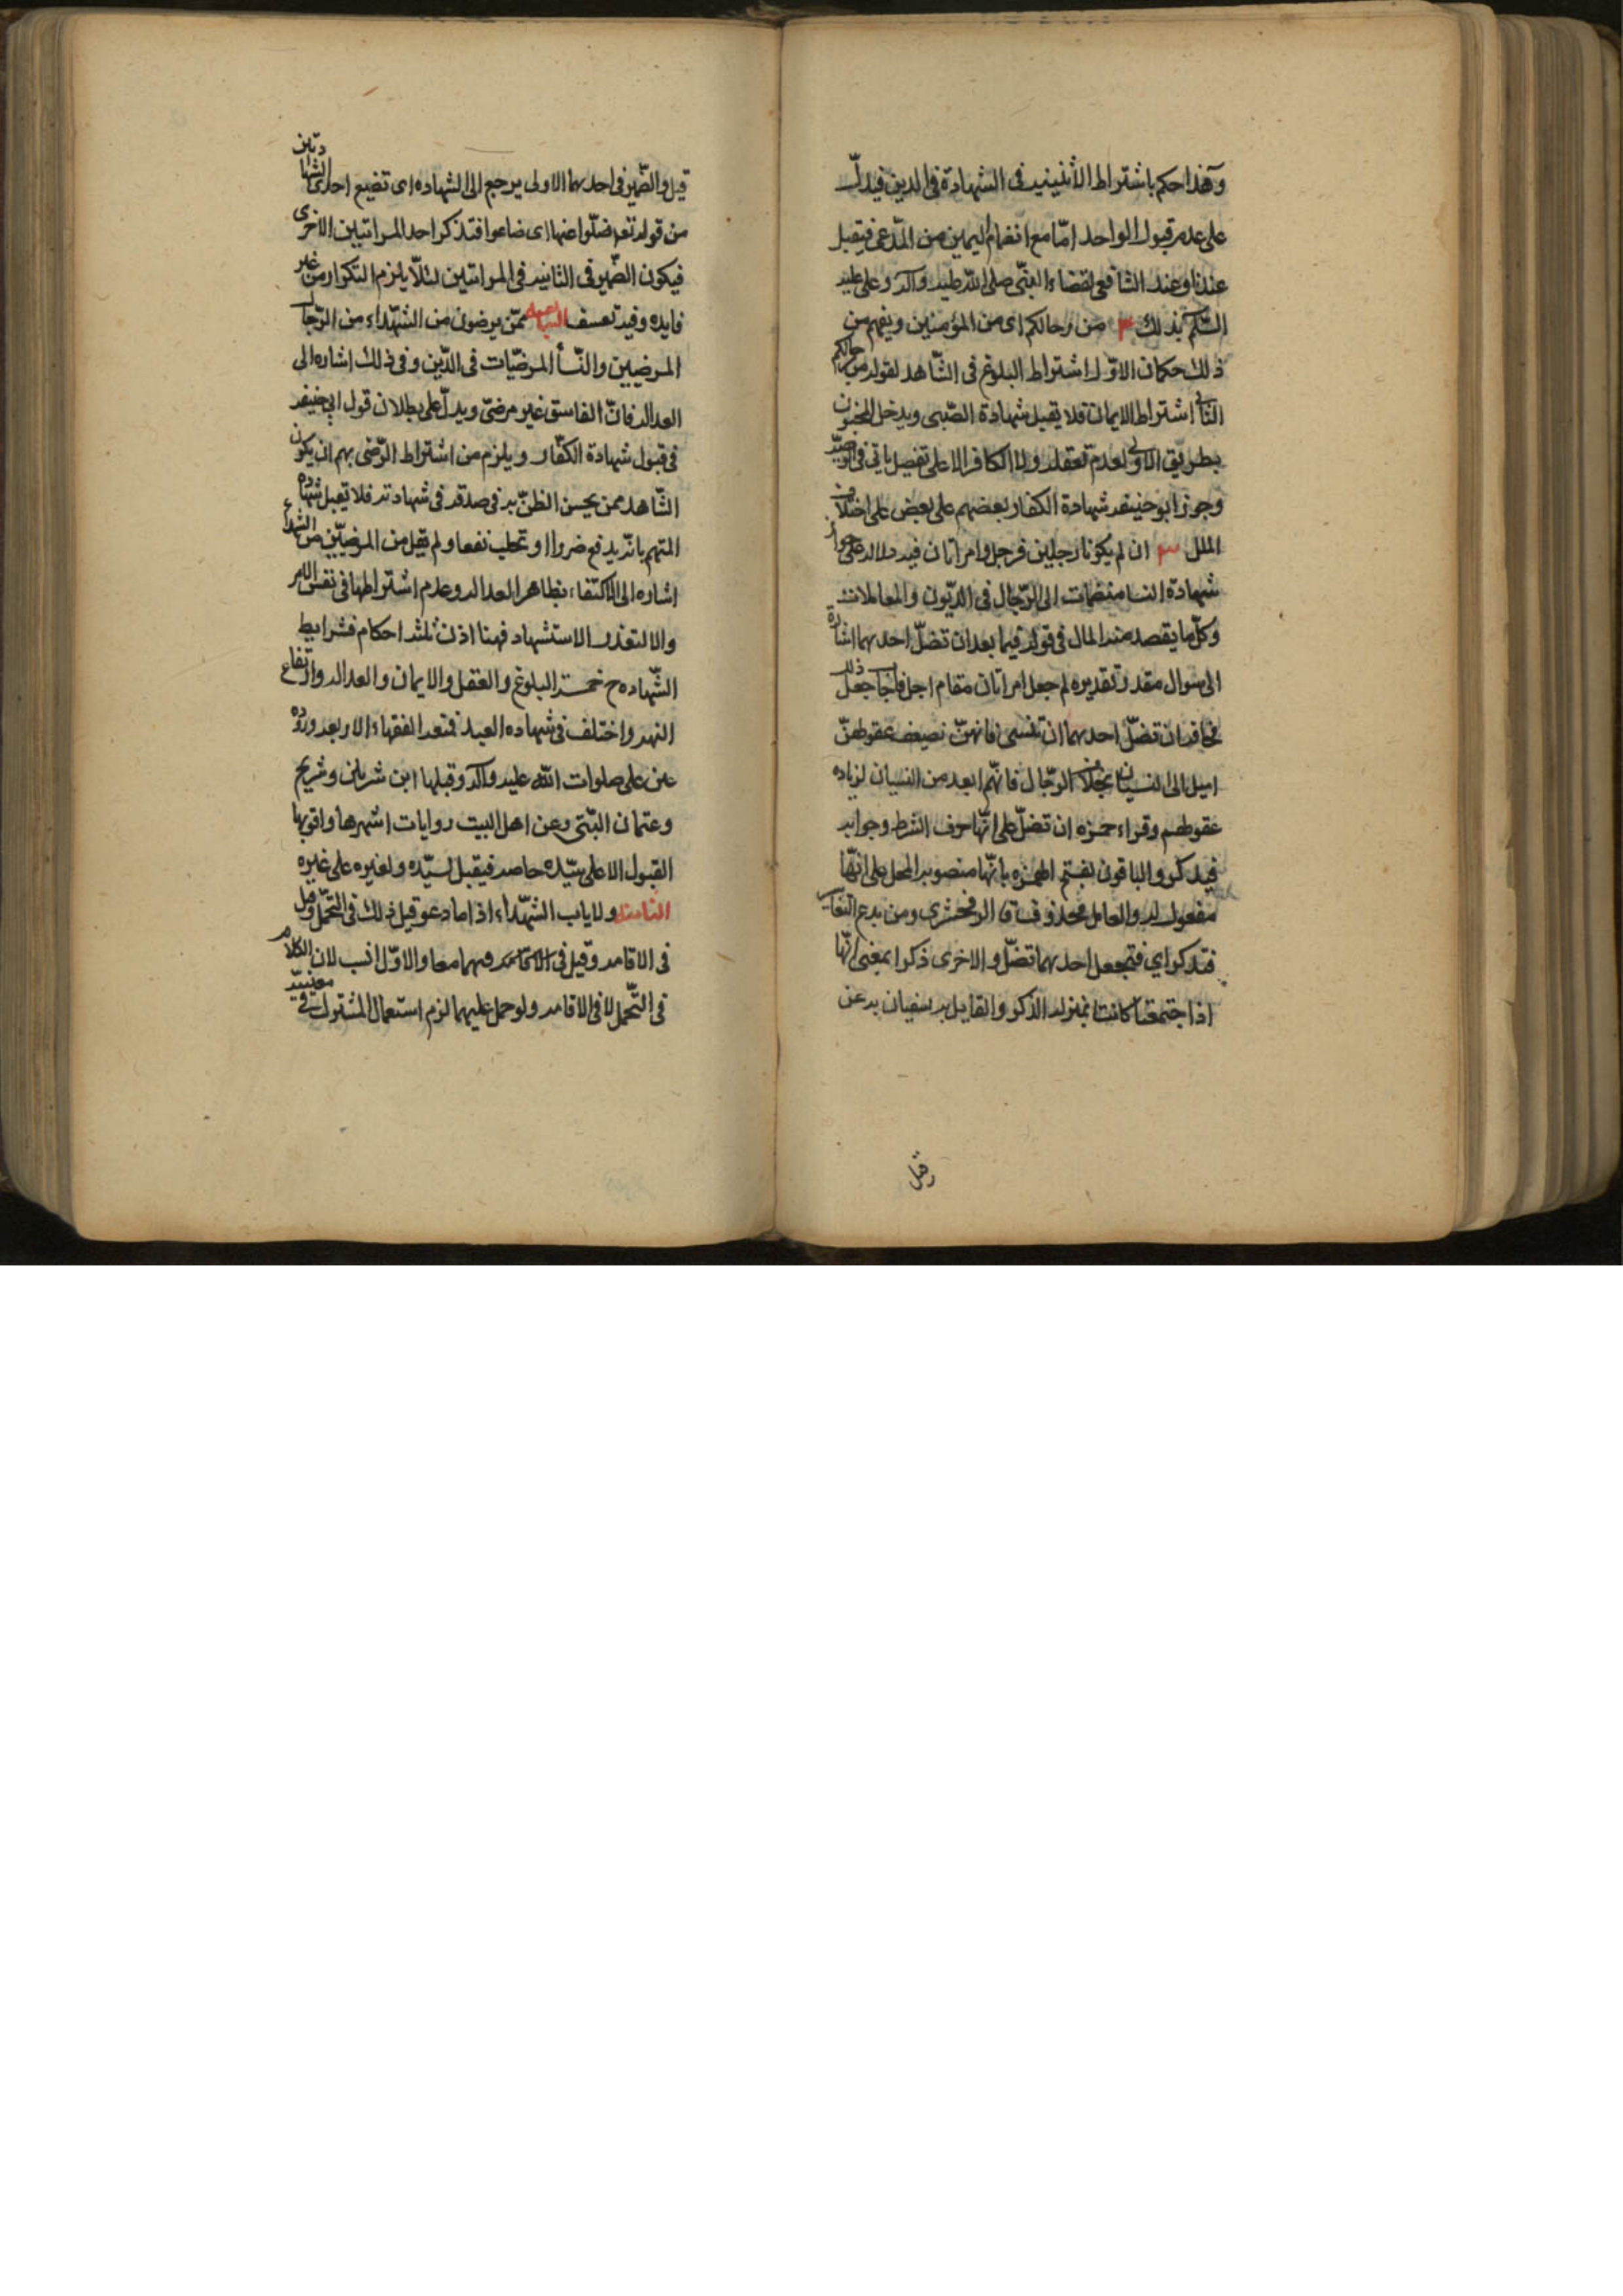 وهذا حكم باشتراط الأثنينية في الشهادة في الدين فيدلّ
على عدم قبول الواحد امّا مع انضمام اليمين من المدّعى فيقبل
عندنا وعند الشافعي لقضاء النبّى صلى الله عليه وآله وعلى عليه
السّلم بذلك ٣ من رجالكم اى من المؤمنين ويفهم من
ذلك حكمان الاوّل اشتراط البلوغ فى الشّاهد لقوله من رجالكم
الثانى اشتراط الايمان فلا تقبل شهادة الصّبى ويدخل المجنون
بطريق الاولى لعدم تعقله ولا الكافر الا على تفصيل ياتي فى الوصيّة
وجوز ابو حنيفه شهادة الكفار بعضهم على بعض على اختلاف
الملل ان لم يكونا رجلين فرجل وامراتان فيه دلاله على جواز
شهادة النسا منضمات الى الرّجال فى الديّون والمعاملات
وكلّ ما يقصد منه المال فى قوله فيما بعد ان تضلّ احديهما اشارة
الى سوال مقدر تقديره لم جعل امراتان مقام رجل فاجاب جعل ذلك
مخافه ان تضلّ احديهما ان تنسى فانهنّ لضعف عقولهنّ
اميل الى النسيان بخلاف الرّجال فانّهم ابعد من النسيان لزياده
عقولهم وقراء حمزه ان تضلّ على انّها حرف الشرط وجوابه
فيذكر والباقون بفتح الهمزه بانّها منصوبه المحل على انّها
مفعول له والعامل محذوف قال الزمخشرى ومن بدع التفاسير
فتذكر اي فتجعل احديهما تضلّ والاخرى ذكرا بمعنى انّها
اذا اجتمعتا كانتا بمنزله الذكر والقايل به سفيان بن عن
وقيل
قيل والضّمير فى احديهما الاولى يرجع الى الشهاده اى تضيع احدى الشهادتين
من قوله تعه ضلّوا عنها اى ضاعوا فتذكر احد المراتبين الاخرى
فيكون الضّمير فى الثانيه فى المراتين لئلّا يلزم التكرار من غير
فايده وفيه تعسف السابعه ممّن يرضون من الشهّداء من الرّجال
المرضيين والنّسأ المرضيّات فى الدّين وفى ذلك اشاره الى
العداله فانّ الفاسق غير مرضىّ ويدلّ على بطلان قول ابى حنيفه
فى قبول شهادة الكفّار ويلزم من اشتراط الرّضى بهم ان يكون
الشّاهد ممن يحسن الظنّ به فى صدقه فى شهادته فلا تقبل شهاده
المتهم بانّه يدفع ضررا او تجلب نفعا ولم يقل من المرضيّين من الشهداء
اشاره الى الاكتفاء بظاهر العداله وعدم اشتراطها فى نفس الامر
والا لتعذر الاستشهاد فهنا اذن ثلثه احكام فشرايط
الشّهاده ح خمسة البلوغ والعقل والايمان والعداله وارتفاع
التهمه واختلف فى شهاده العبد فمنعه الفقهاء الاربعه ورووه
عن على صلوات الله عليه وآله وقبلها ابن شريك وشريح
وعثمان البتّى وعن اهل البيت روايات اشهرها واقويها
القبول الا على سيّده خاصه فيقبل لسيّده ولغيره على غيره
الثامنه ولا ياب الشهّداء اذا ما دعو قيل ذلك فى التحّمل وقيل
فى الاقامه وقيل فى فيهما معا والاوّل انسب لان الكلام
فى التّحمل لا فى الاقامه ولو حمل عليهما لزم استعمال المشترك فى معنييه